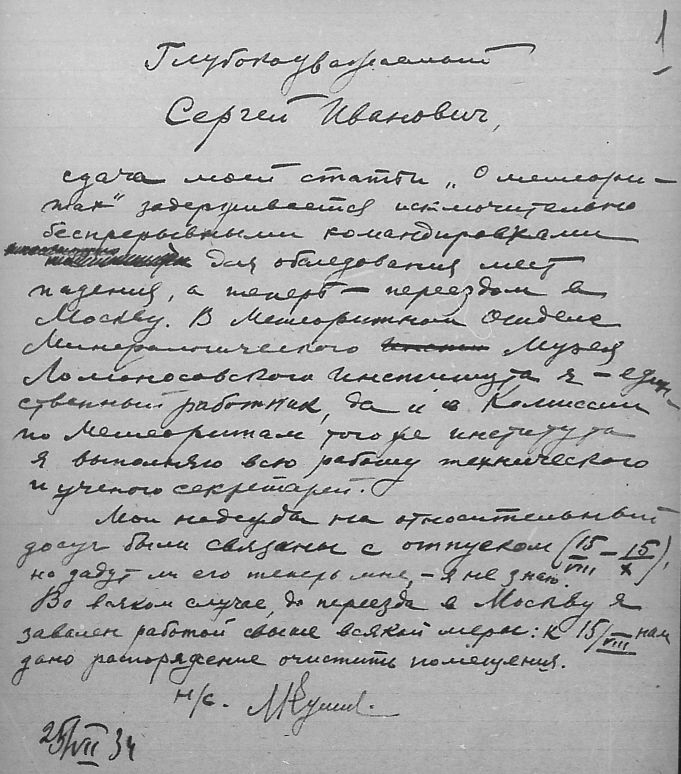 1
Глубокоуважаемый
Сергей Иванович,
сдача моей статьи „О метеори-
тах“ задерживается исключительно
беспрерывными командировками
для обследования мест
падения, а теперь – переездом в
Москву. В Метеоритном Отделе
Минералогического Музея
Ломоносовского Института я – един-
ственный работник, да и в Комиссии
по Метеоритам того же института
я выполняю всю работу технического
и ученого секретарей.
Мои надежды на относительный
досуг были связаны с отпуском (15/VIII – 15/X),
но дадут ли его теперь мне, – я не знаю.
Во всяком случае, до переезда в Москву я
завален работой свыше всякой меры: к 15/VIII нам
дано распоряжение очистить помещения.
25/VII 34